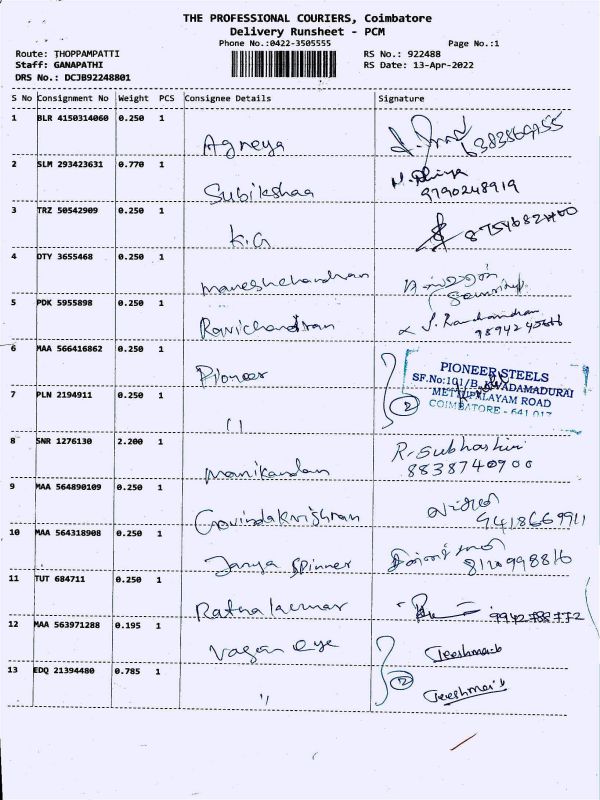 THE PROFESSIONAL COURIERS, Coimbatore
Delivery Runsheet - PCM
Phone No.:0422-3505555
Page No.:1
Route: THOPPAMPATTI
RS No.: 922488
Staff: GANAPATHI
RS Date: 13-Apr-2022
DRS No.: DCJB92248801
S No Consignment No Weight PCS Consignee Details Signature
1 BLR 4150314060 0.250 1
Agneya
2 SLM 293423631 0.770 1
Subikshaa
9790248919
3 TRZ 50542909 0.250 1
K.G
4 OTY 3655468 0.250 1
Maheshchandran
5 PDK 5955898 0.250 1
Ravichandran
6 MAA 566416862 0.250 1
Pioneer
PIONEER STEELS
SF.No:101/B, KVADAMADURAI
METTUPALAYAM ROAD
COIMBATORE - 641 017
7 PLN 2194911 0.250 1
2
11
8 SNR 1276130 2.200 1
Manikandan
R. Subhashini
8838740900
9 MAA 564890109 0.250 1
Govindakrishnan
9418669911
10 MAA 564318908 0.250 1
Spinner
11 TUT 684711 0.250 1
Rathnakumar
9942788772
12 MAA 563971288 0.195 1
Vasan eye
Teeshmai.b
13 EDQ 21394480 0.785 1
12
Teeshmai.b
11